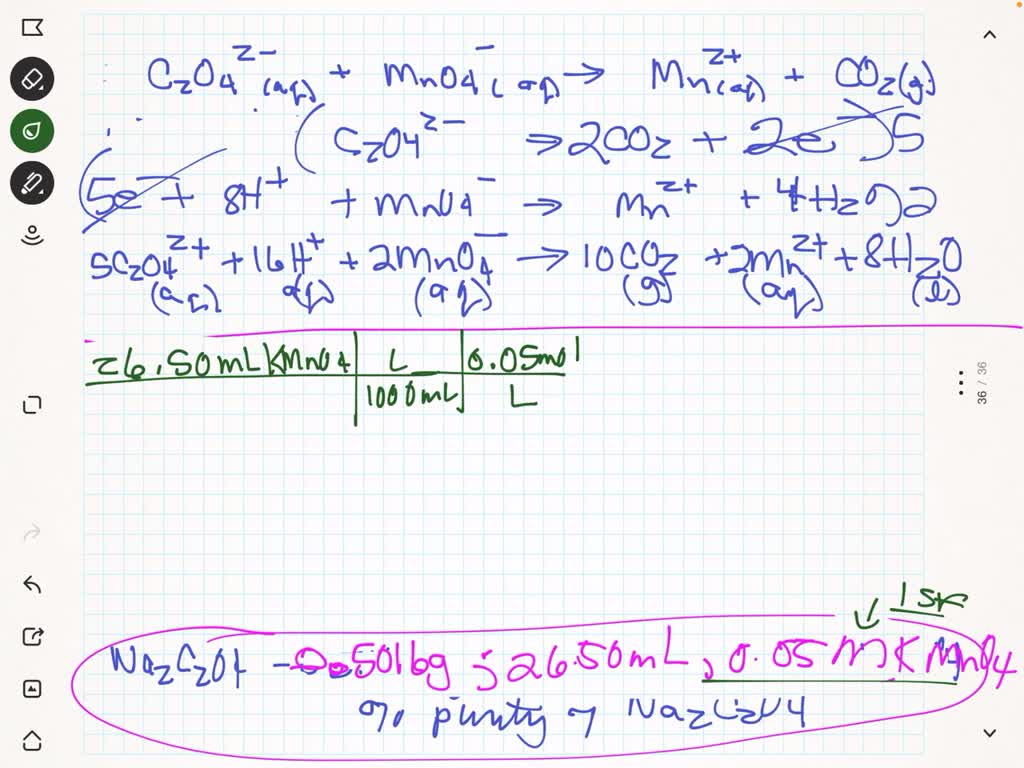 C₂O₄²⁻(aq) + MnO₄⁻(aq) → Mn²⁺(aq) + CO₂(g)
(C₂O₄²⁻ ⇒ 2CO₂ + 2e⁻)5
(5e⁻ + 8H⁺ + MnO₄⁻ → Mn²⁺ + 4H₂O)2
5C₂O₄²⁺ + 16H⁺ + 2MnO₄⁻ → 10CO₂ + 2Mn²⁺ + 8H₂O
(aq) (aq) (aq) (g) (aq) (l)
26.50mL KMnO₄ | L | 0.05mol
1000mL | L
36 / 36
1 SF
Na₂C₂O4 - 0.5016g ; 26.50mL, 0.05M KMnO₄
% purity of Na₂C₂O4